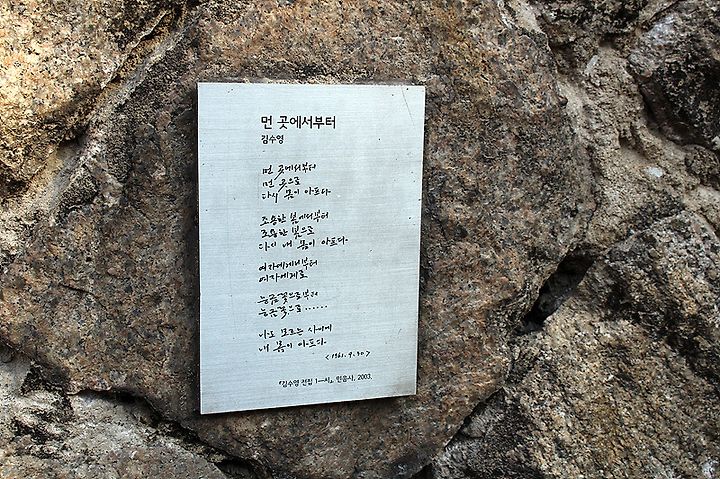 먼 곳에서부터
김수영
먼 곳에서부터
먼 곳으로
다시 몸이 아프다
조용한 봄에서부터
조용한 봄으로
다시 내 몸이 아프다.
여자에게서부터
여자에게로
능금꽃으로부터
능금꽃으로......
나도 모르는 사이에
내 몸이 아프다.
<1961. 9. 30>
『김수영 전집 1—시』, 민음사, 2003.